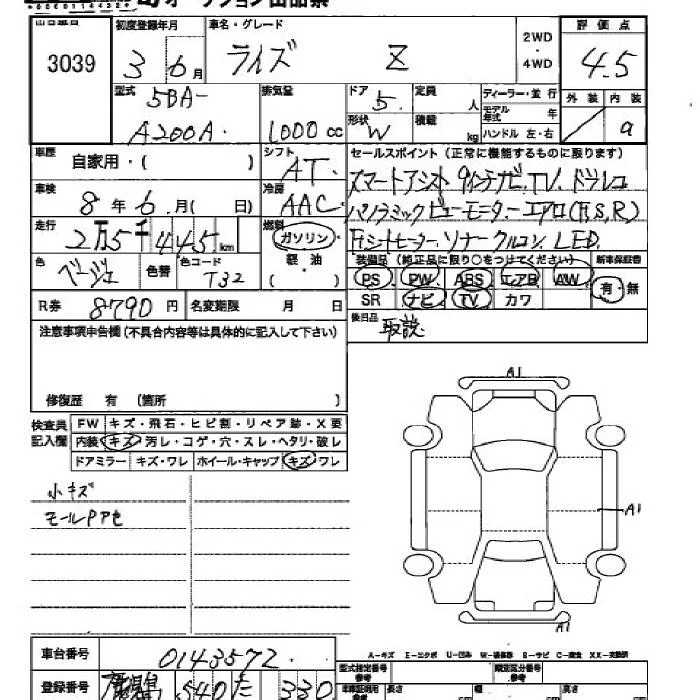 オークション出品票
初度登録年月 車名・グレード 2WD・4WD 評価点
3039 3 6月 ライズ Z 4.5
型式 5BA- A200A. 排気量 1000 cc
ドア 5 定員 人 ディーラー・並行 外装 内装
形状 W 積載 kg モデル年式 年 a
ハンドル 左・右
車歴 自家用・( ) シフト AT.
セールスポイント(正常に機能するものに限ります)
車検 8年 6月( 日) 冷房 AAC
スマートアシスト 9インチナビ.TV.ドラレコ
パノラミックビューモニター エアロ(F,S,R)
走行 2万5千445km 燃料 ガソリン・軽油・( )
Fシートヒーター.ソナー クルコン.LED.
色 ベージュ 色替 色コード T32
装備品(純正品に限り○をつけてください) 新車保証書
PS PW ABS エアB AW 有・無
SR ナビ TV カワ
R券 8790円 名変期限 月 日
後日品 取説
注意事項申告欄(不具合内容等は具体的に記入して下さい)
修復歴 有 (箇所 )
検査員記入欄
FW キズ・飛石・ヒビ割・リペア跡・X要
内装 キズ・汚レ・コゲ・穴・スレ・ヘタリ・破レ
ドアミラー キズ・ワレ ホイール・キャップ キズ・ワレ
小キズ
モールPアセ
A1
A1
A1
車台番号 0143572
A-キズ E-エクボ U-凹み W-補修跡 S-サビ C-腐食 XX-交換済
登録番号 540 た 330
型式指定番号 参考 類別区分番号 参考
長さ cm 幅 cm 高さ cm